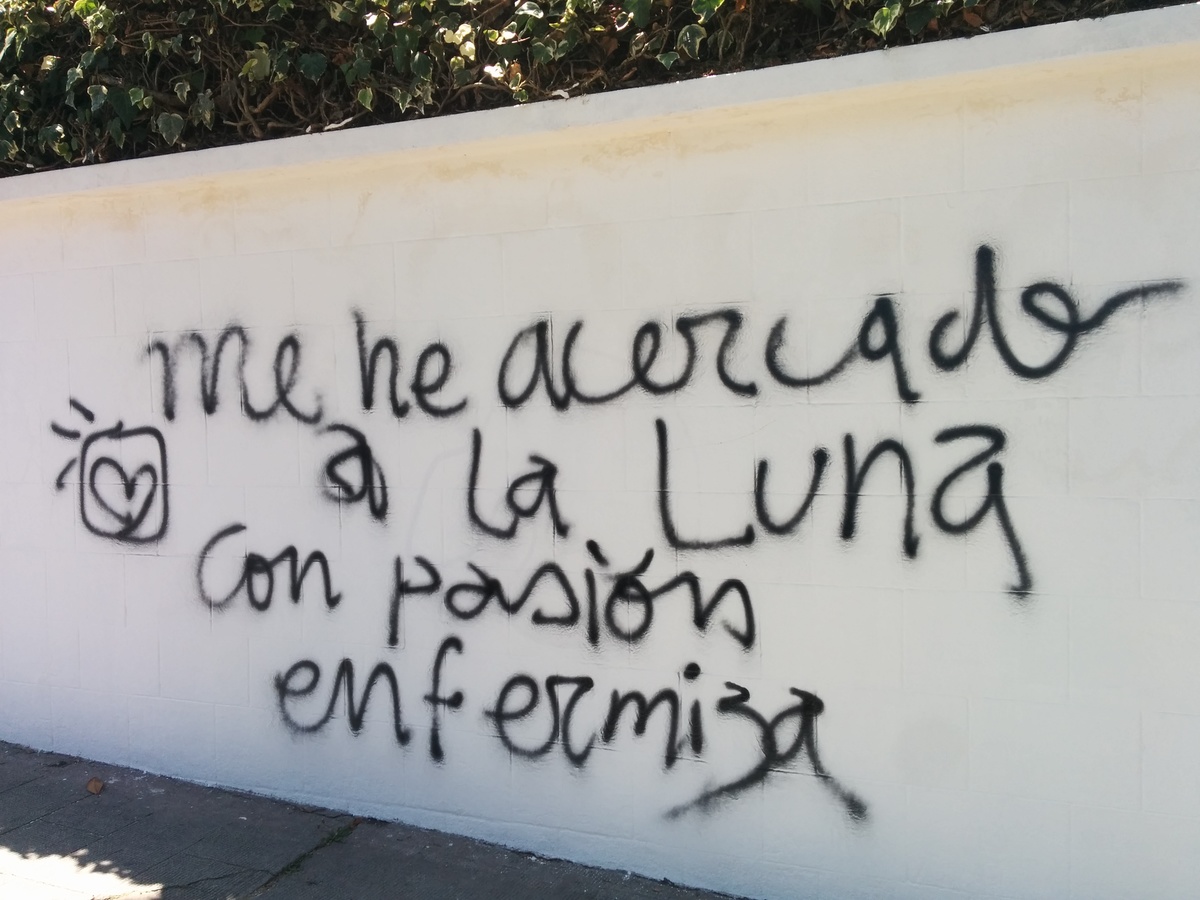 me he acercado
a la Luna
con pasión
enfermiza